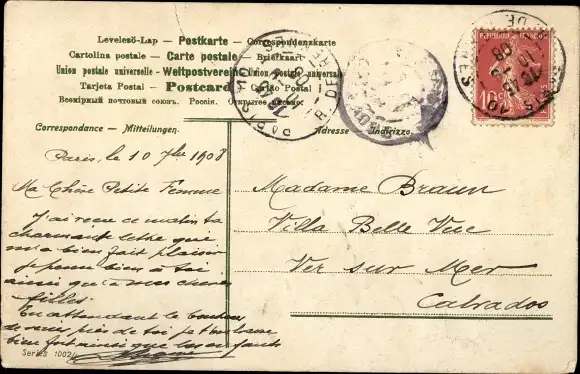 Levelező-Lap — Postkarte — Correspondenzkarte
Cartolina postale — Carte postale — Briefkaart
Union postale universelle — Weltpostverein — Union postale universale
Tarjeta Postal — Postcard — Cartão Postal
Всемірный почтовый союзъ. Россія. Открытое письмо.
Correspondance — Mitteilungen.
Adresse — Indirizzo.
REPUBLIQUE FRANÇAISE
10 c
Paris, le 10 7bre 1908
Ma Chère Petite Femme
J'ai reçu ce matin ta
charmante lettre qui
m'a bien fait plaisir
Je pense bien à toi
ainsi qu'à mes chères
filles
En attendant le bonheur
de vous près de toi je t'embrasse
bien fort ainsi que les enfants
Madame Braun
Villa Belle Vue
Ver sur Mer
Calvados
Series 1002